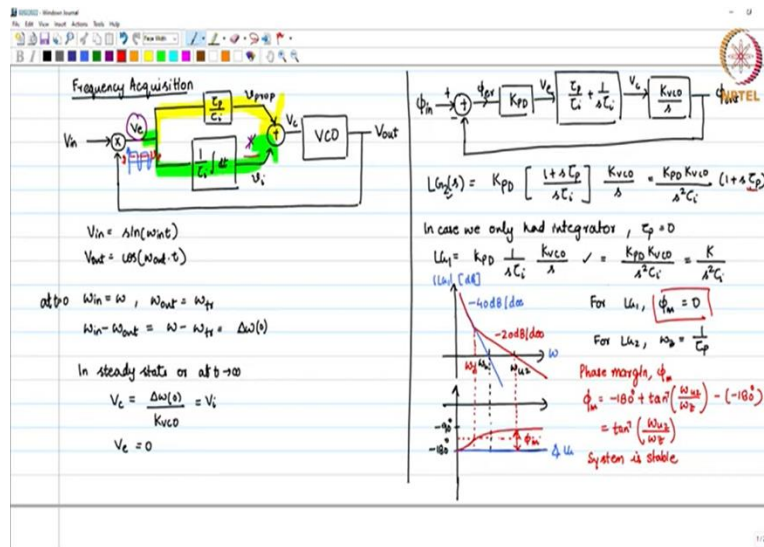 6002022 - Windows Journal
File Edit View Insert Actions Tools Help
Frequency Acquisition
τp/τi
Vprop
Vin
x
Ve
+
Vc
VCO
Vout
1/τi ∫dt
Vi
Vin = sin(ωin t)
Vout = cos(ωout·t)
at t=0 ωin = ω, ωout = ωfr
ωin - ωout = ω - ωfr = Δω(0)
In steady state or at t→∞
Vc = Δω(0)/KVCO = Vi
Ve = 0
ϕin
+
-
ϕer
KPD
Ve
τp/τi + 1/sτi
Vc
KVCO/s
ϕout
NPTEL
LG2(s) = KPD [1+sτp/sτi] KVCO/s = KPD KVCO/s²τi (1+sτp)
In case we only had integrator, τp = 0
LG1 = KPD 1/sτi KVCO/s ✓ = KPD KVCO/s²τi = K/s²τi
|LG| [dB]
-40dB/dec
-20dB/dec
ω
ωz
ωu2
-90°
-180°
ϕm
∠LG
For LG1, ϕm = 0
For LG2, ωz = 1/τp
Phase margin, ϕm
ϕm = -180° + tan⁻¹(ωu2/ωz) - (-180°)
= tan⁻¹(ωu2/ωz)
System is stable